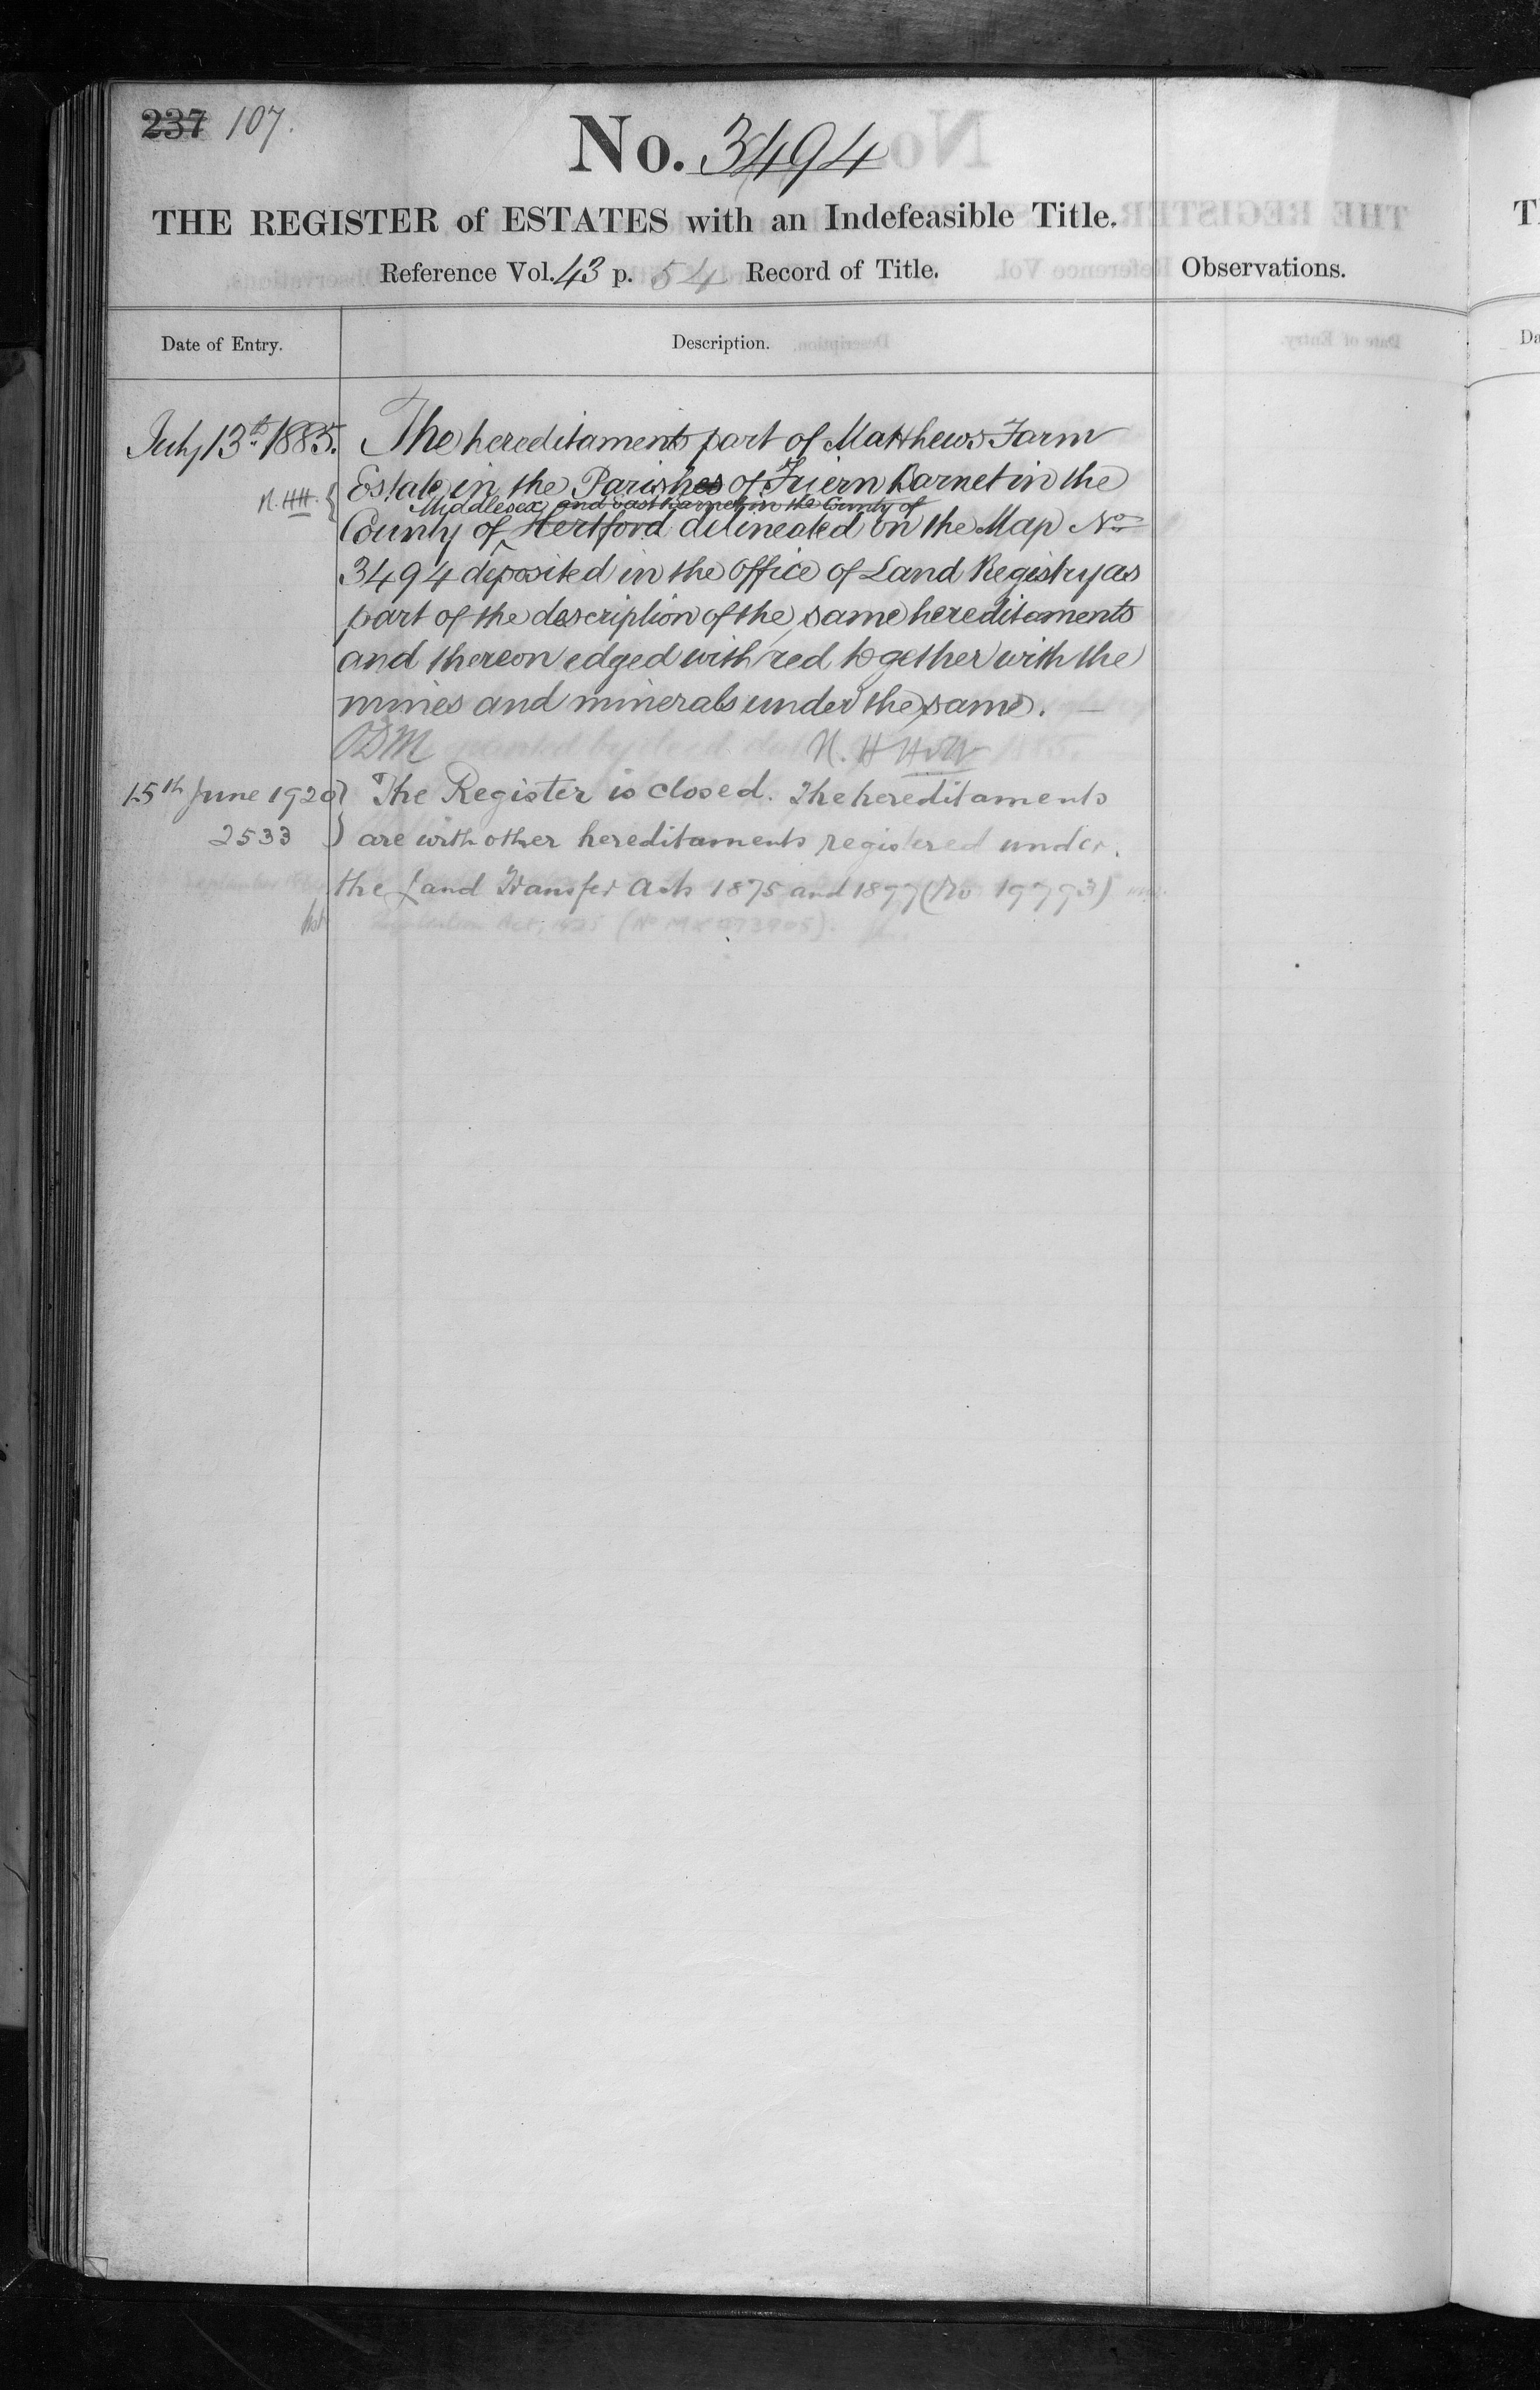 237 107.
No. 3494
THE REGISTER of ESTATES with an Indefeasible Title.
Reference Vol. 43 p. 54 Record of Title.
Observations.
Date of Entry.
Description.
July 13th 1885. The hereditaments part of Matthews Farm
Estate in the Parishes of Friern Barnet in the
N.HH. { Middlesex and East Barnet in the County of
County of Hertford delineated on the Map No
3494 deposited in the Office of Land Registry as
part of the description of the same hereditaments
and thereon edged with red together with the
mines and minerals under the same.
N. H Holt
15th June 1920 } The Register is closed. The hereditaments
2533 } are with other hereditaments registered under
the Land Transfer Acts 1875 and 1897 (No 19793)